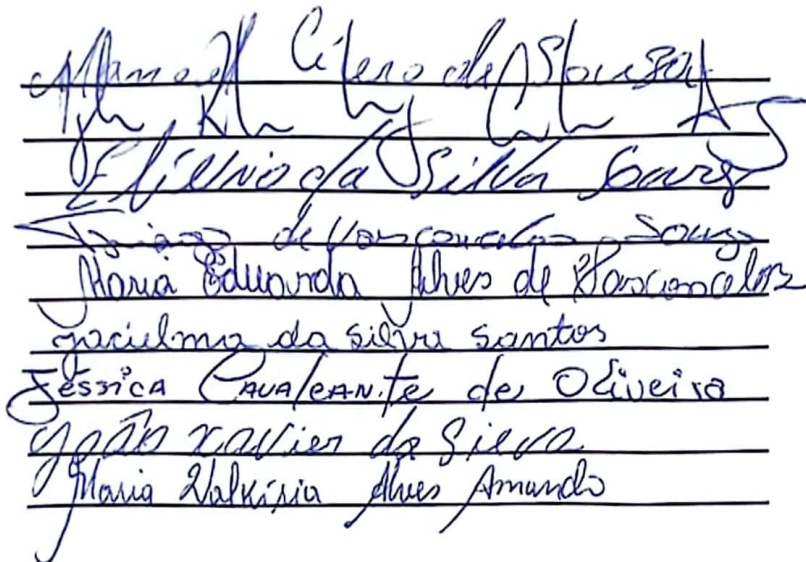 Manoel Cícero de Souza
Elienio da Silva
Thiago de Vasconcelos Souza
Maria Eduarda Alves de Vasconcelos
Jacielma da Silva Santos
Jéssica Cavalcante de Oliveira
João Xavier da Silva
Maria Valkíria Alves Amando